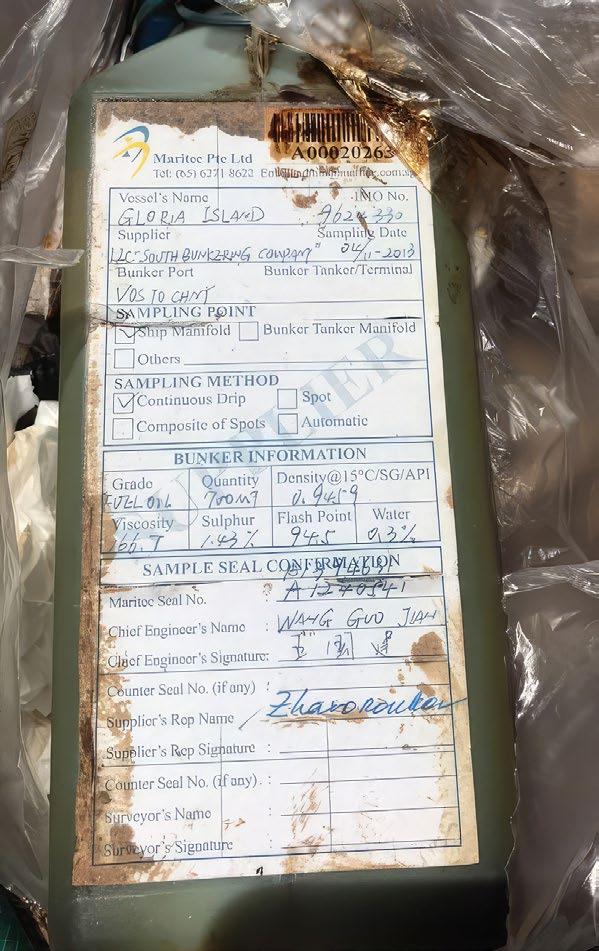 A00020263
Maritec Pte Ltd
Tel: (65) 6271 8622
Vessel's Name IMO No.
GLORIA ISLAND
Supplier Sampling Date
LLC "SOUTH BUNKERING COMPANY" 04/11-2013
Bunker Port Bunker Tanker/Terminal
VOSTOCHNY
SAMPLING POINT
Ship Manifold Bunker Tanker Manifold
Others
SAMPLING METHOD
Continuous Drip Spot
Composite of Spots Automatic
SUPPLIER
BUNKER INFORMATION
Grade Quantity Density@15°C/SG/API
FUEL OIL 700MT 0.9459
Viscosity Sulphur Flash Point Water
1.43% 94.5 0.3%
SAMPLE SEAL CONFIRMATION
Maritec Seal No. : A1240541
Chief Engineer's Name : WANG GUO JIAN
Chief Engineer's Signature:
Counter Seal No. (if any) :
Supplier's Rep Name
Supplier's Rep Signature :
Counter Seal No. (if any). :
Surveyor's Name :
Surveyor's Signature :